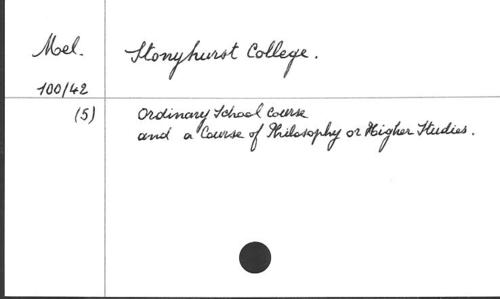 Mel. Stonyhurst College.
100/42
(5) Ordinary School Course
and a Course of Philosophy or Higher Studies.